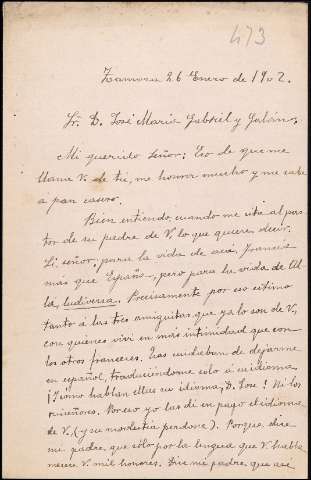 473
Zamora 26 Enero de 1902.
Sr. D. José María Gabriel y Galán.
Mi querido Señor: Eso de que me
llame V. de tú, me honra mucho y me sabe
a pan casero.
Bien entiendo, cuando me cita al pas
tor de su padre de V. lo que quiere decir.
Sí, señor, para la vida de acá, Francia
más que España, pero para la vida de Al
la, Precisamente por eso estimo
tanto á las tres amiguitas, que ya lo son de V,
con quienes viví en más intimidad que con
los otros franceses. Ellas cuidaban de dejarme
en español, traduciéndome solo á su idioma
¡Y cómo hablan ellas su idioma, D. José! Ni los
ruiseñores. Por eso yo las dí en pago el idioma
de V. (y su modestia perdone). Porque, dice
mi padre, que sólo por la lengua que V. habla
merece V. mil honores. Dice mi padre, que así